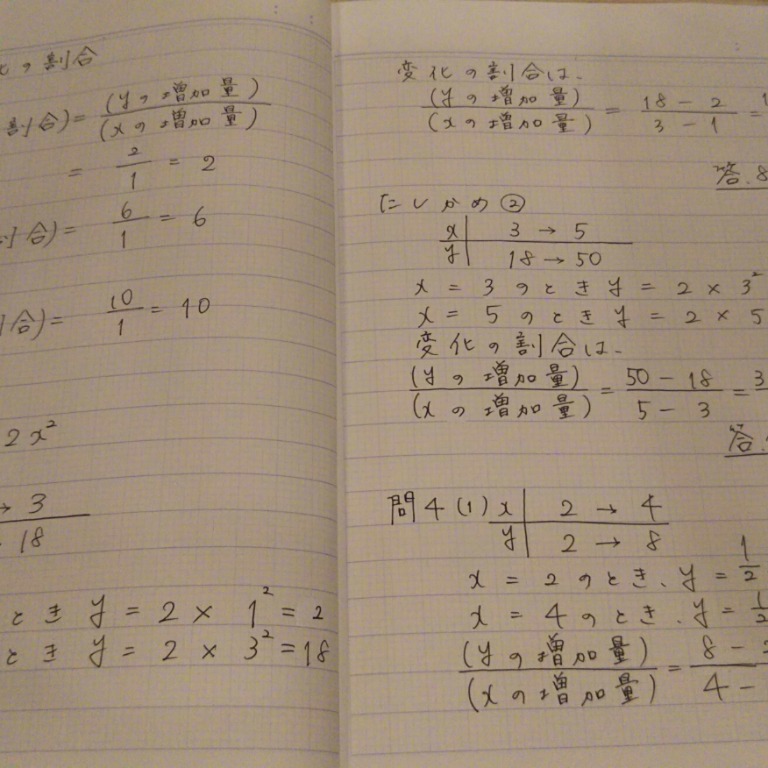 化の割合
割合)= (yの増加量)
(xの増加量)
= 2/1 = 2
割合)= 6/1 = 6
割合)= 10/1 = 10
2x²
→ 3
18
ときy = 2 × 1² = 2
ときy = 2 × 3² = 18
変化の割合は、
(yの増加量)/(xの増加量) = 18 - 2/3 - 1 =
答.8
たしかめ②
x | 3 → 5
y | 18 → 50
x = 3のときy = 2 × 3²
x = 5のときy = 2 × 5
変化の割合は、
(yの増加量)/(xの増加量) = 50 - 18/5 - 3 = 3
答.
問4(1) x | 2 → 4
y | 2 → 8
x = 2のとき、y = 1/2
x = 4のとき、y = 1/2
(yの増加量)/(xの増加量) = 8 -/4 -